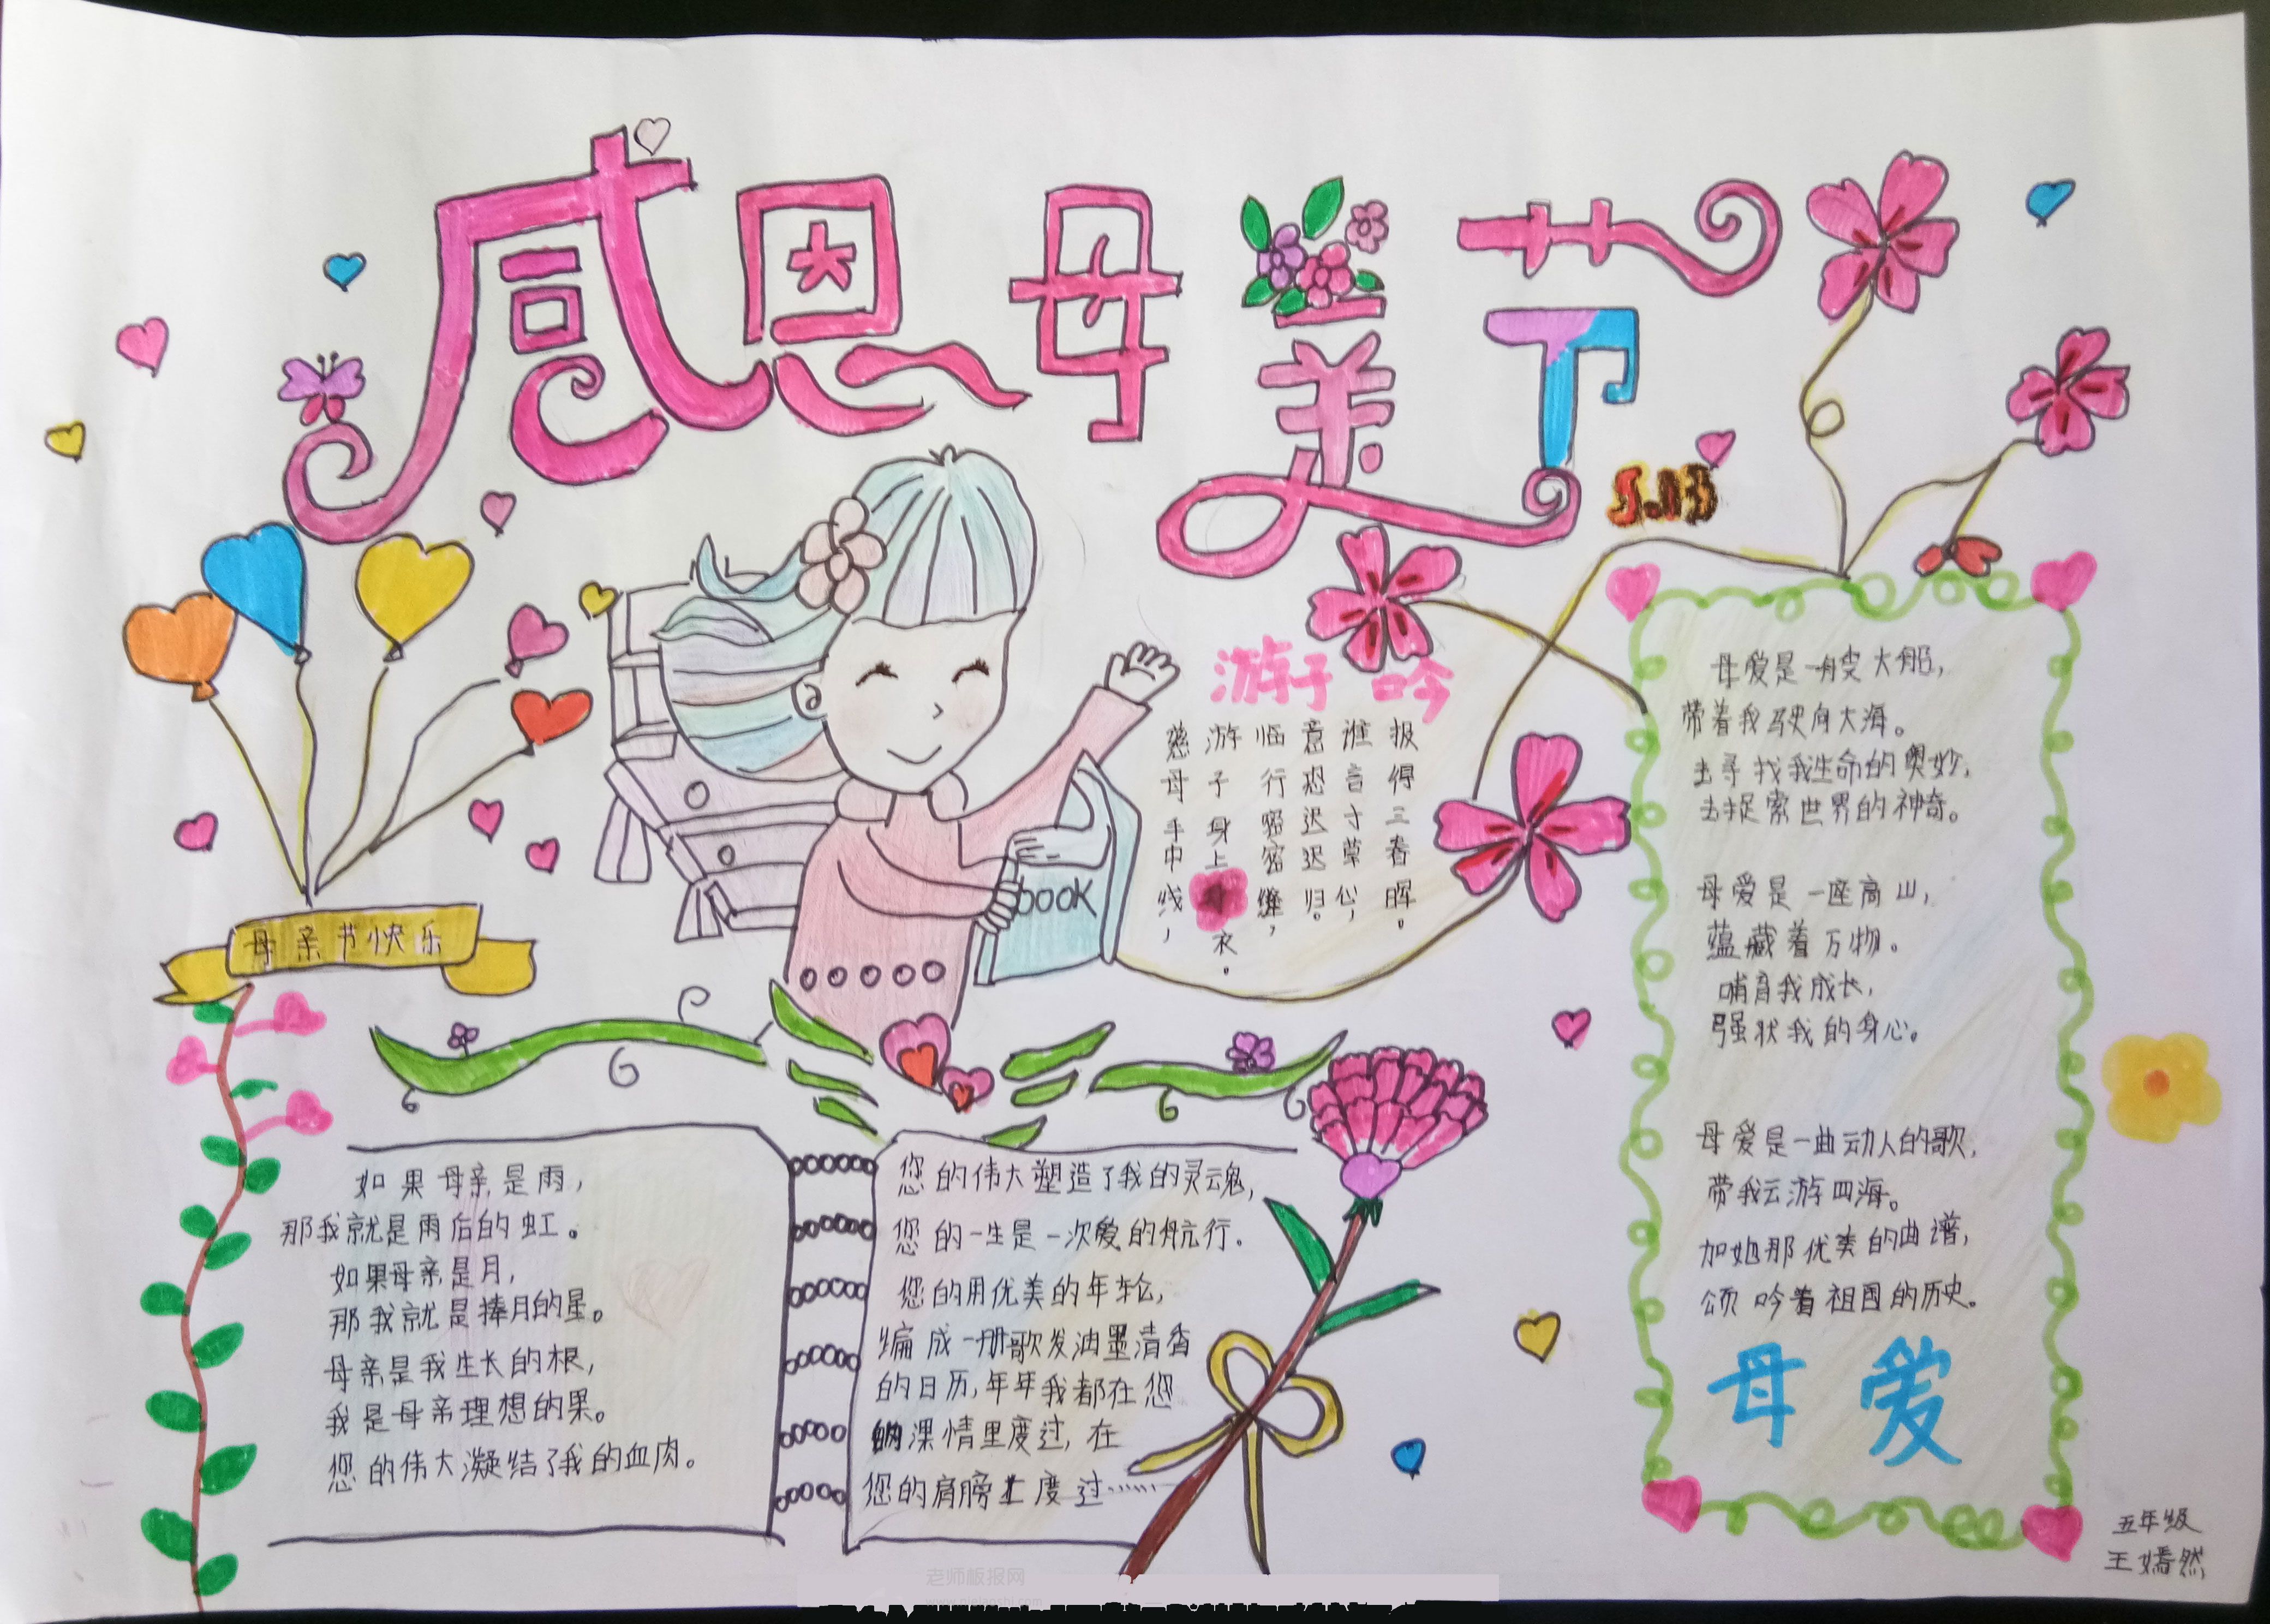 感恩母美节
5.13
母亲节快乐
book
游子吟
慈母手中线，
游子身上衣。
临行密密缝，
意恐迟迟归。
谁言寸草心，
报得三春晖。
母爱是一艘大船，
带着我驶向大海。
去寻找我生命的奥妙，
去捉索世界的神奇。
母爱是一座高山，
蕴藏着万物。
哺育我成长，
强状我的身心。
母爱是一曲动人的歌，
带我云游四海。
加她那优美的曲谱，
颂吟着祖国的历史。
母爱
如果母亲是雨，
那我就是雨后的虹。
如果母亲是月，
那我就是捧月的星。
母亲是我生长的根，
我是母亲理想的果。
您的伟大凝结了我的血肉。
您的伟大塑造了我的灵魂，
您的一生是一次爱的航行.
您的用优美的年轮，
编成一册歌发油墨清香
的日历，年年我都在您
的深情里度过，在
您的肩膀上度过……
五年级
王嫣然
老师板报网